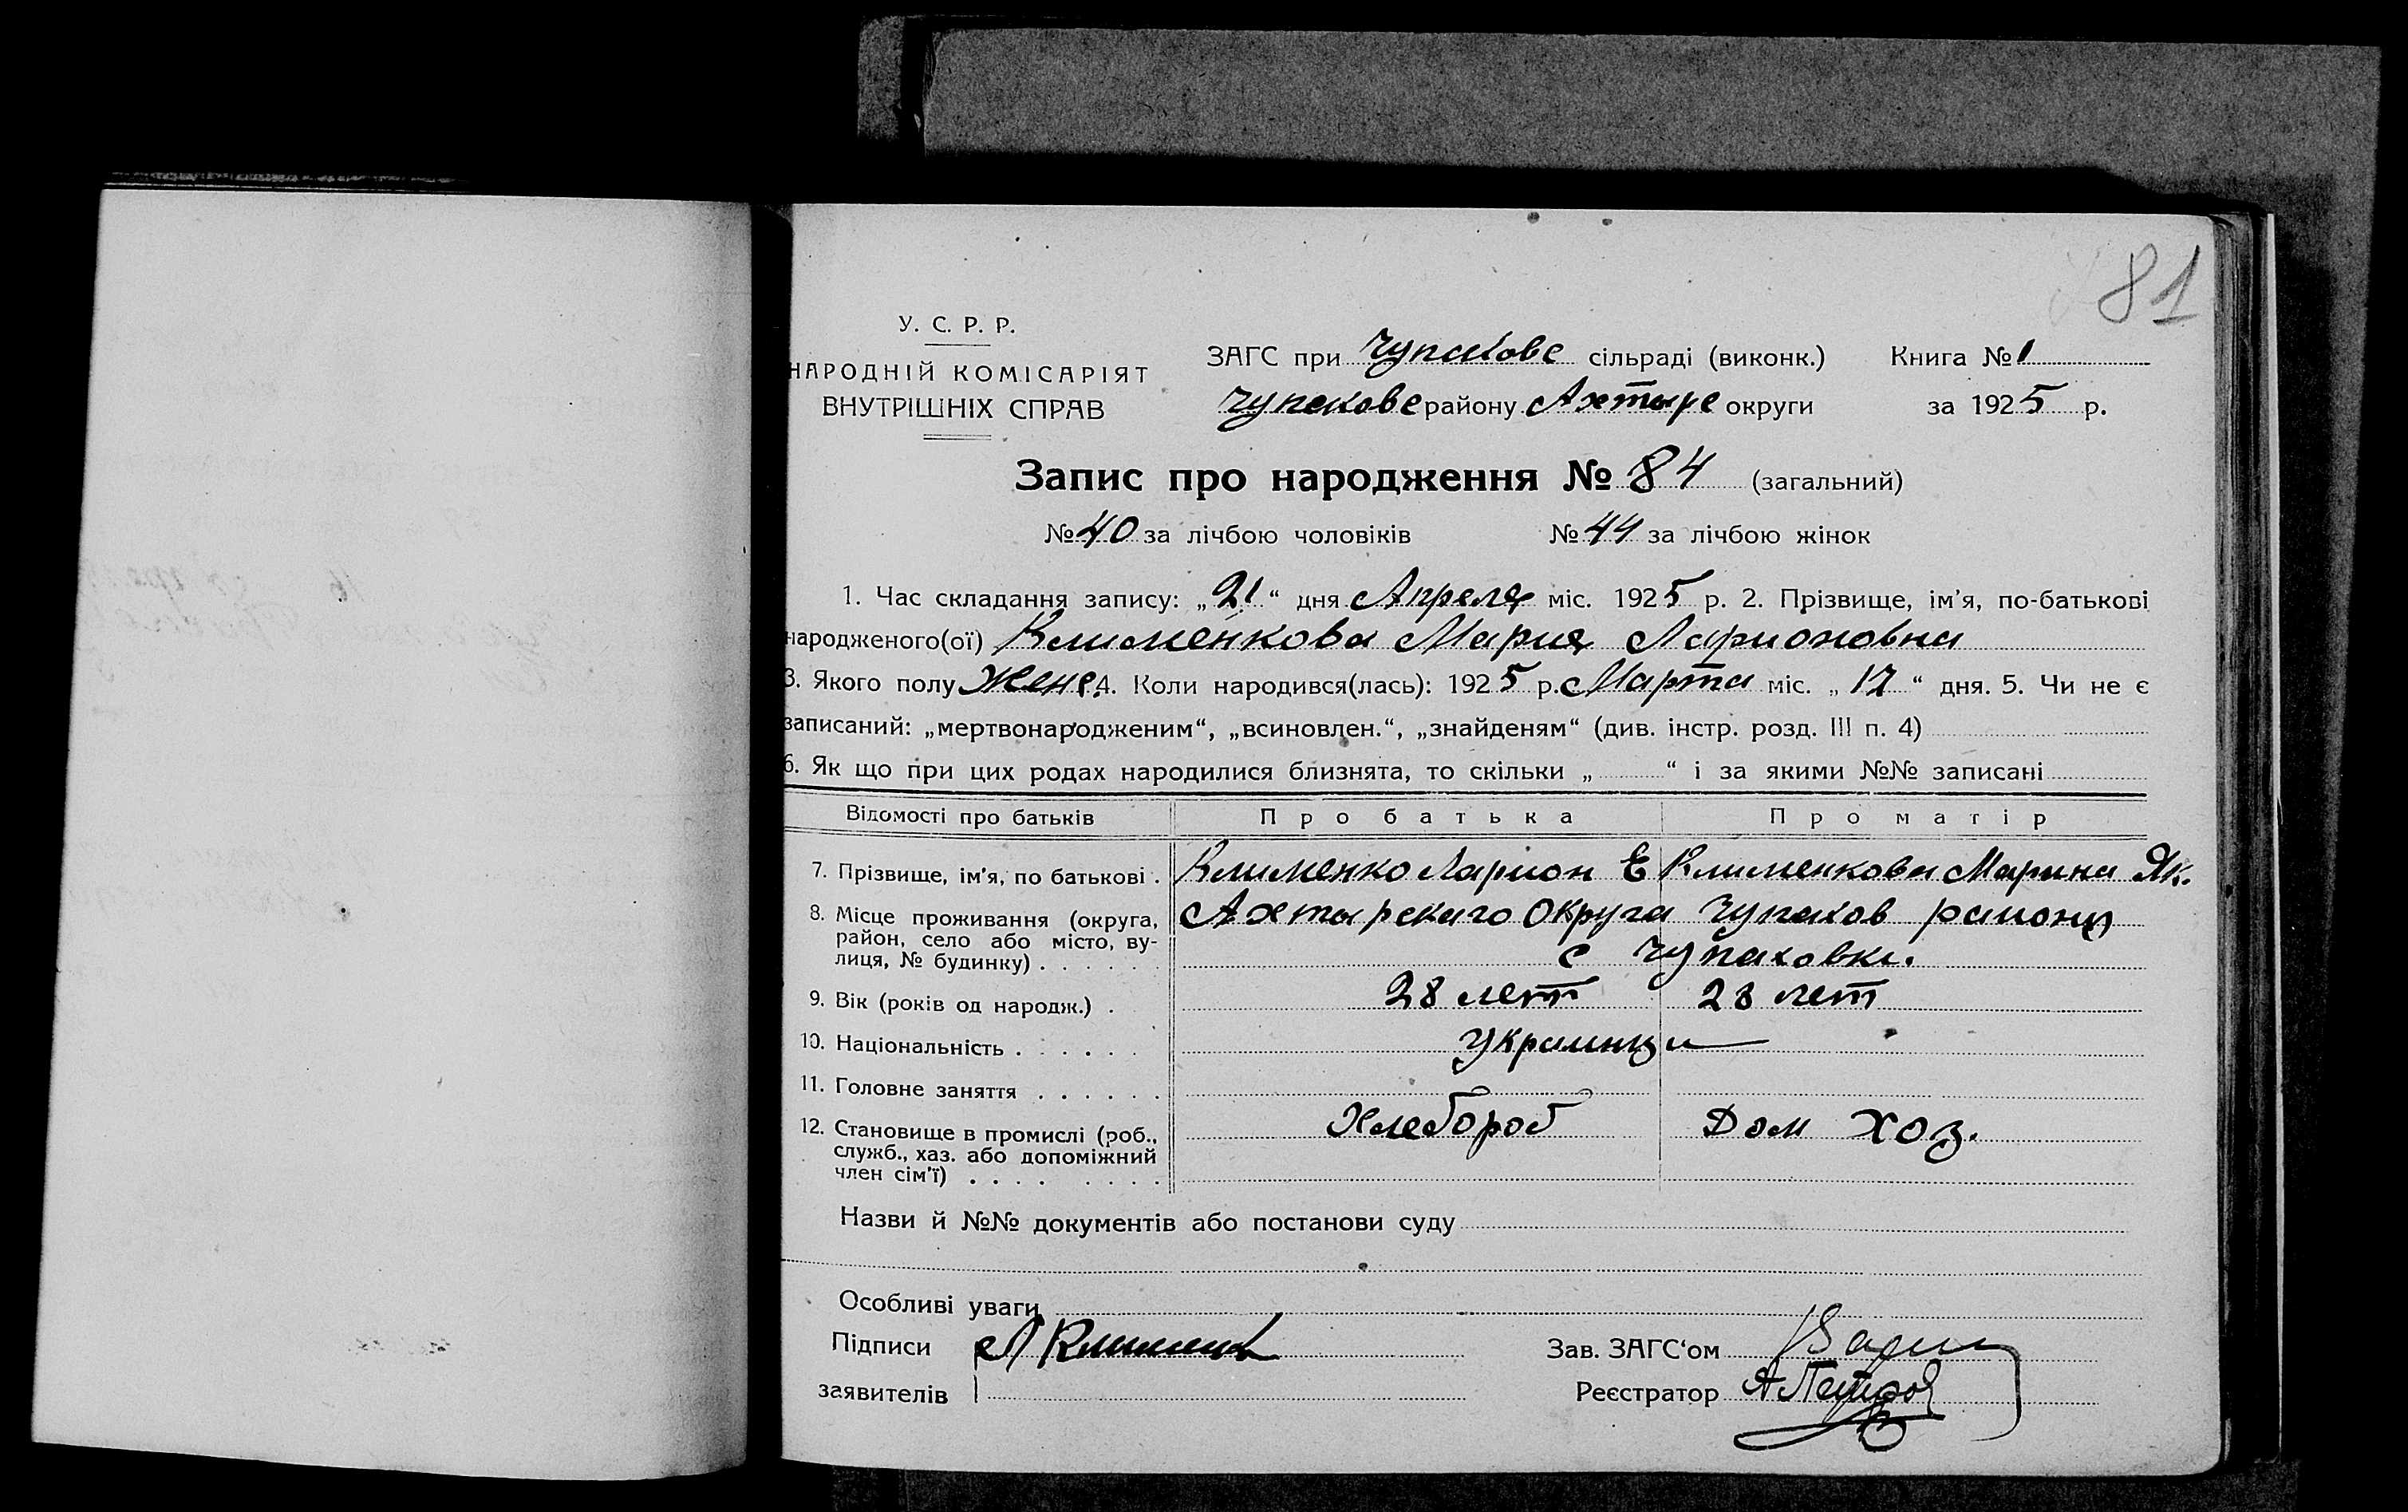 81
У. С. Р. Р.
НАРОДНІЙ КОМІСАРІЯТ
ВНУТРІШНІХ СПРАВ
ЗАГС при Чупахове сільраді (виконк.) Книга № 1
Чупахове району Ахтыре округи за 1925 р.
Запис про народження № 84 (загальний)
№ 40 за лічбою чоловіків № 44 за лічбою жінок
1. Час складання запису: „21“ дня Апреля міс. 1925 р. 2. Прізвище, ім’я, по-батькові
народженого(ої) Клименкова Мария Ларионовна
3. Якого полу Жене. 4. Коли народився(лась): 1925 р. Марта міс. „17“ дня. 5. Чи не є
записаний: „мертвонародженим“, „всиновлен.“, „знайденям“ (див. інстр. розд. III п. 4)
6. Як що при цих родах народилися близнята, то скільки „ “ і за якими №№ записані
Відомості про батьків Про батька Про матір
7. Прізвище, ім’я, по батькові . Клименко Ларион Е Клименкова Марина Як.
8. Місце проживання (округа, Ахтырскаго Округа Чупахов района
район, село або місто, ву-
лиця, № будинку) . . . . . . с Чупаховки.
9. Вік (років од народж.) . 28 лет 28 лет
10. Національність . . . . . . Украинци
11. Головне заняття . . . . . .
12. Становище в промислі (роб., Хлебороб Дом хоз.
служб., хаз. або допоміжний
член сім’ї) . . . . . . . .
Назви й №№ документів або постанови суду
Особливі уваги
Підписи Л Клименко Зав. ЗАГС‘ом
заявителів Реєстратор А Петров